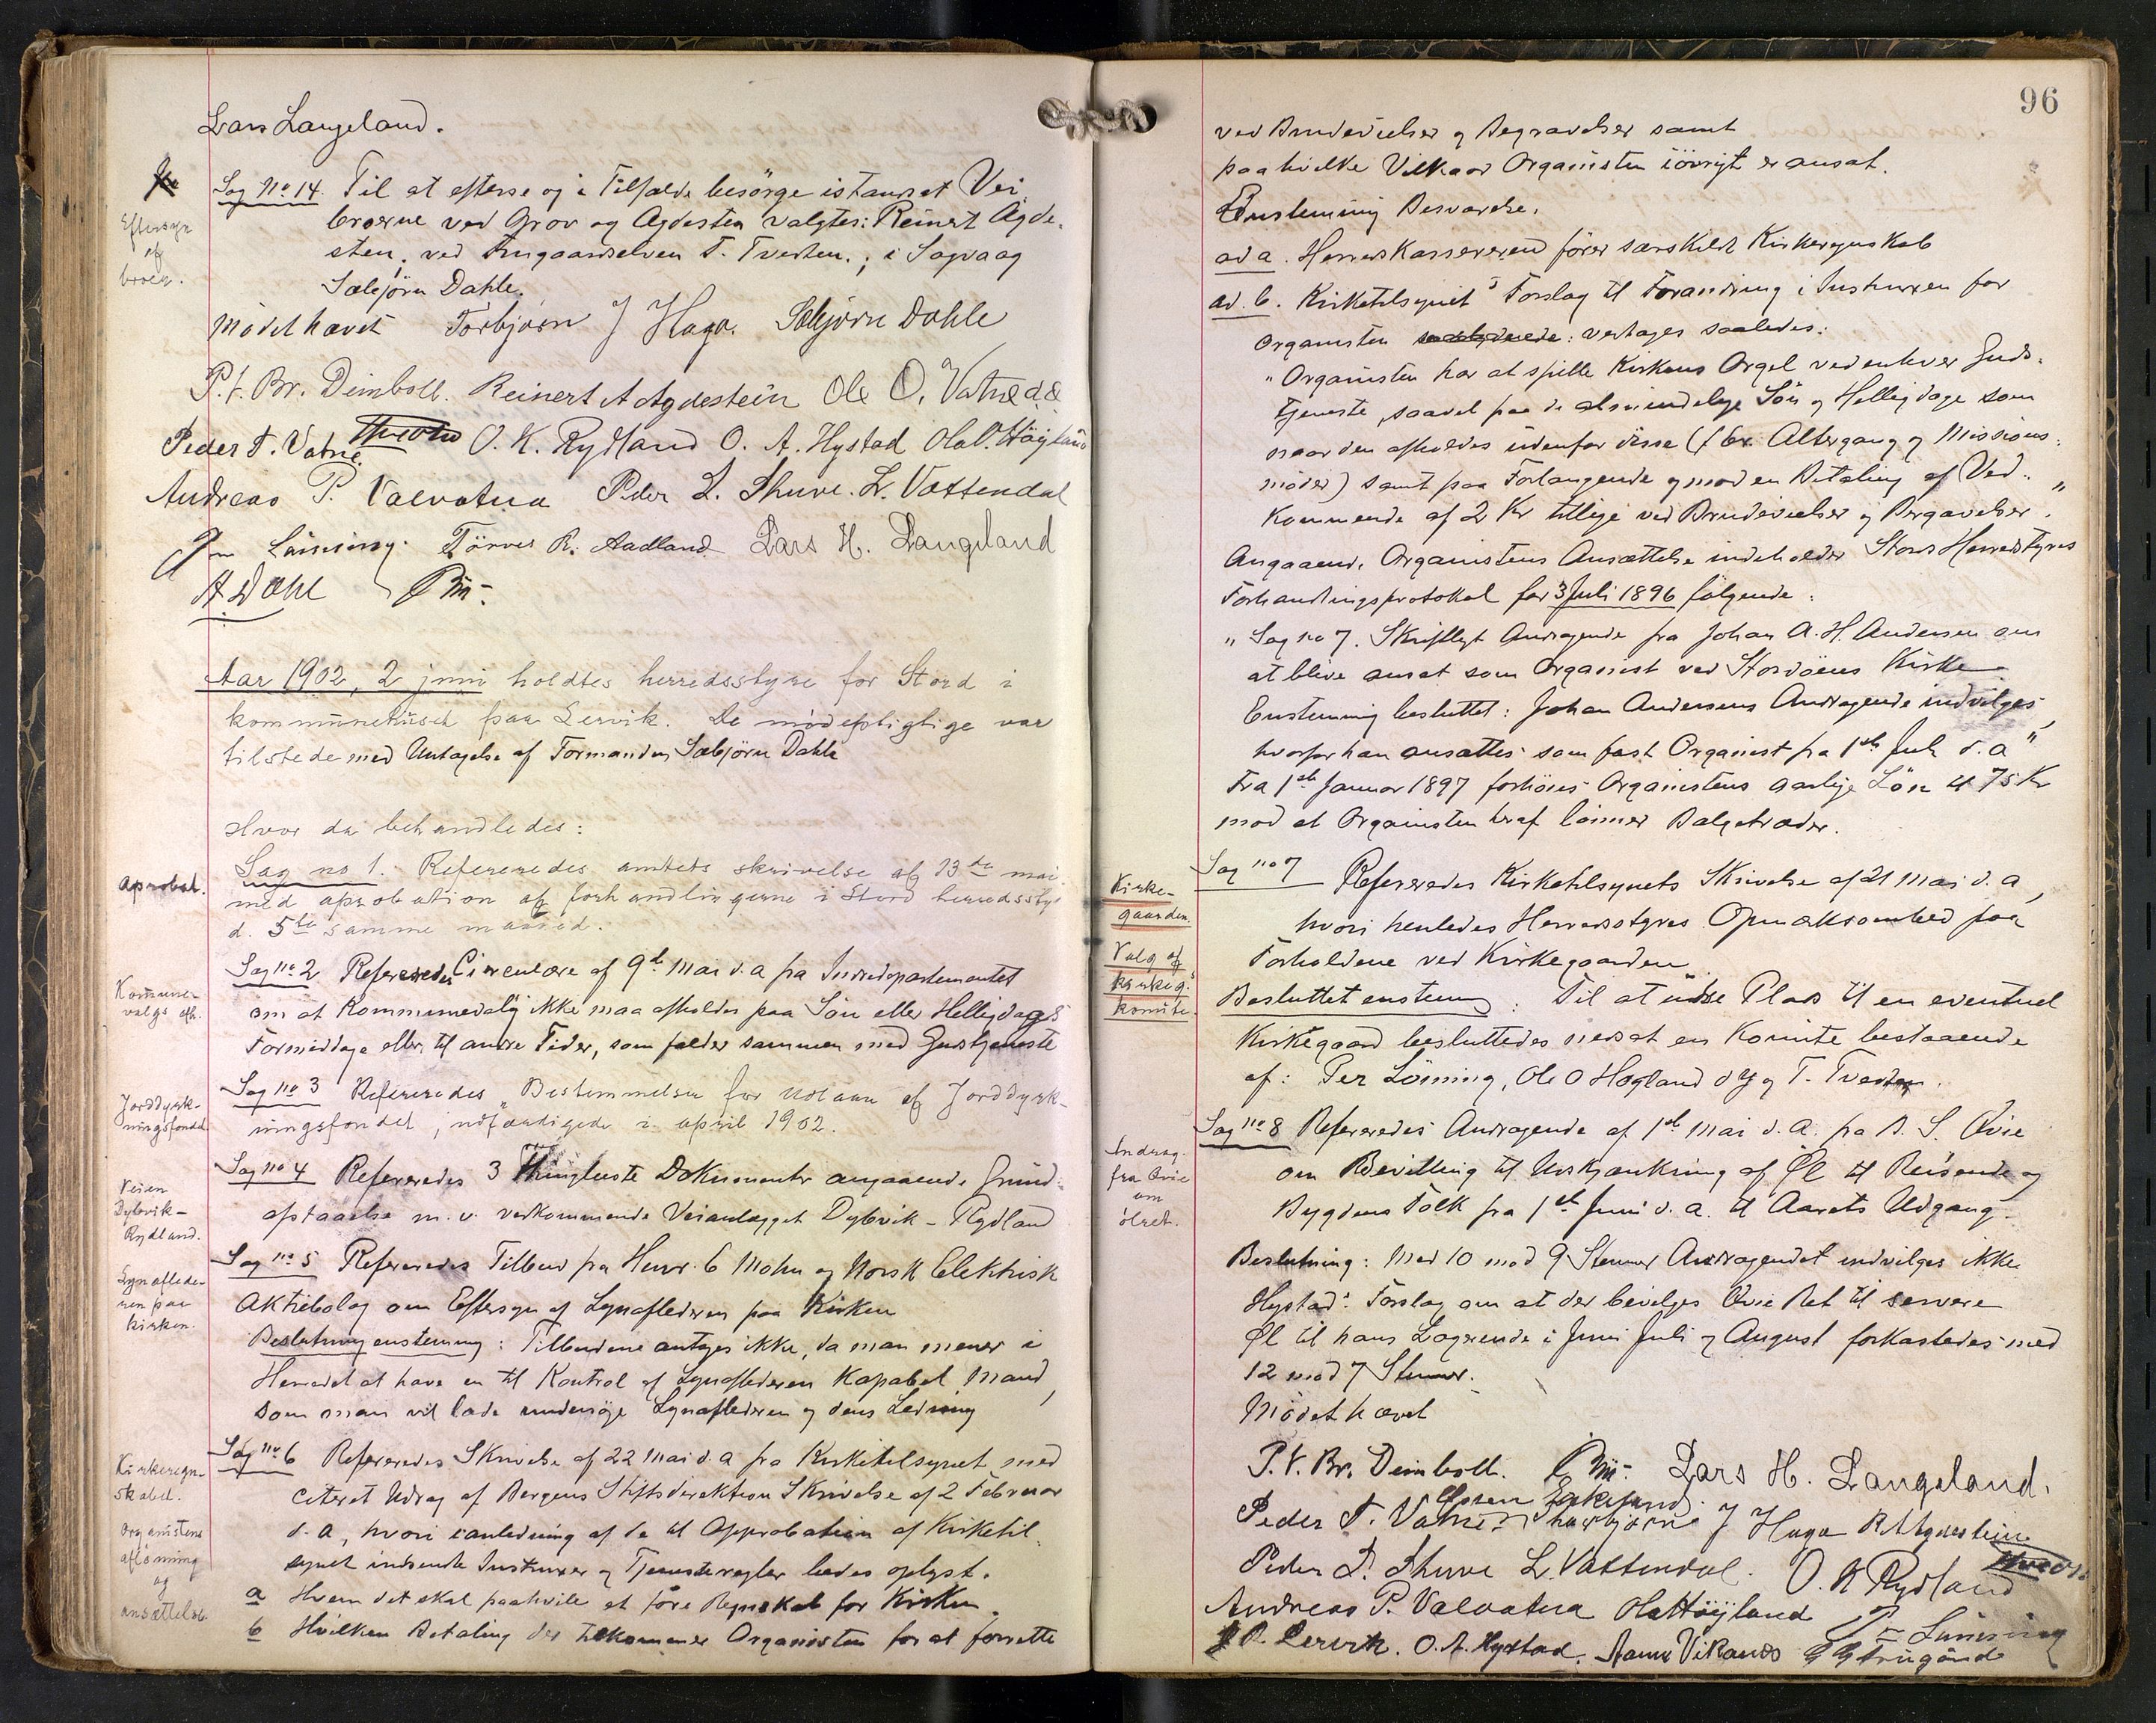 Lars Langeland.
Sag No 14. Til at efterse og i Tilfælde besörge istandsat Vei
Eftersyn
af
broer.
broerne ved Grov og Agdesten valgtes: Reinert Agde-
sten; ved Frugaardselven T. Tveten.; i Sagvaag
Sæbjörn Dahle.
Mödet hævet Torbjörn J Haga. Sæbjörn Dahle
P.t. Br. Deinboll. Reinert A Agdestein Ole O. Vatnedde
Peder T. Vatne. O. K. Rydland O. A. Hystad Ola O. Höyland
Andreas P. Valvatna Peder L. Thuve. L. Vattendal
Per Lönning. Törres R. Aadland Lars H. Langeland
A Dahl
Aar 1902, 2 juni holdtes herredsstyre for Stord i
kommunehuset paa Lervik. De mödepligtige var
tilstede med Untagelse af Formanden Sæbjörn Dahle
Hvor da behandledes:
Aprobat.
Sag no 1. Refereredes amtets skrivelse af 13de mai
med aprobation af forhandlingerne i Stord herredssty
d. 5te samme maaned.
Kommune-
valgs afh.
Sag no 2 Refereredes Circulære af 9de Mai d.a fra Indredepartementet
om at Kommunevalg ikke maa afholdes paa Sön eller Helligdages
Formiddage eller til andre Tider, som falder sammen med Gudstjeneste
Jorddyrk-
ningsfondet
Sag no 3 Refereredes „Bestemmelser for Udlaan af Jorddyrk-
ningsfondet, udfærdigede i april 1902.
Veien
Dybvik-
Rydland.
Sag no 4 Refereredes 3 Thinglæste Dokumenter angaaende Grund-
afstaaelse m.v. vedkommende Veianlægget Dybvik - Rydland
Lynaflede-
ren paa
kirken.
Sag no 5 Refereredes Tilbud fra Herr. C Mohn og Norsk Elektrisk
Aktiebolag om Eftersyn af Lynaflederen paa Kirken
Beslutning enstemmig: Tilbudene antages ikke, da man mener i
Herredet at have en til Kontrol af Lynaflederen Kapabel Mand,
som man vil lade undersöge Lynaflederen og dens Ledning
Kirkeregn-
skabet.
Organistens
aflönning
og
ansættelse.
Sag no 6 Refereredes Skrivelse af 22 Mai d.a fra Kirketilsynet med
citeret Udrag af Bergens Stiftsdirektion Skrivelse af 2 Februar
d.a, hvori i anledning af de til Approbation af Kirketil-
synet indsendte Instruxer og Tjenesteregler bedes oplyst.
a Hvem det skal paahvile at före Regnskab for Kirken.
b Hvilken Betaling der tilkommer Organisten for at forrette
96
ved Brudevielser og Begravelser samt
paa hvilke Vilkaar Organisten iövrigt er ansat.
Enstemmig Besvarelse.
ad a. Herredskassereren förer særskildt Kirkeregnskab
ad. b. Kirketilsynets Forslag til Forandring i Instruxen for
Organisten vedtages saaledes:
"Organisten har at spille Kirkens Orgel ved enhver Guds-
tjeneste, saavel paa de almindelige Sön og Helligdage som
naar den afholdes udenfor disse (f. Ex. Altergang og Missions-
möder) samt paa Forlangende og mod en Betaling af Ved-
kommende af 2 Kr tillige ved Brudevielser og Bergavelser."
Angaaende Organistens Ansættelse indeholder Stord Herredstyres
Forhandlingsprotokol for 3 Juli 1896 fölgende:
"Sag no 7. Skriftligt Andragende fra Johan A. H. Andersen om
at blive ansat som Organist ved Stordöens Kirke
Enstemmig besluttet: Johan Andersens Andragende indvilges,
hvorfor han ansættes som fast Organist fra 1ste Juli d.a"
Fra 1ste Januar 1897 forhöies Organistens aarlige Lön til 75 Kr
mod at Organisten heraf lönner Belgetræder.
Kirke-
gaarden.
Valg af
kirkeg.
komite.
Sag no 7 Refereredes Kirketilsynets Skrivelse af 21 Mai d.a,
hvori henledes Herredsstyres Opmærksomhed paa
Forholdene ved Kirkegaarden
Besluttet enstemmig: Til at udse Plads til en eventuel
Kirkegaard besluttedes nedsat en Komite bestaaende
af: Per Lönning, Ole O Høgland d y og T. Tveten.
Andrag.
fra Ovie
om
ölret.
Sag no 8 Refereredes Andragende af 1ste Mai d.a. fra B. S. Øvie
om Bevilling til Udskjænkning af Øl til Reisende og
Bygdens Folk fra 1ste Juni d.a. til Aarets Udgang.
Beslutning: Med 10 mod 9 Stemmer Andragendet indvilges ikke.
Hystads Forslag om at der bevilges Øvie Ret til servere
Øl til hans Logerende i Juni Juli og August forkastedes med
12 mod 7 Stemmer.
Mödet hævet
P.t. Br. Deinboll. Lars H. Langeland.
Peder T. Vatne. Thorbjörn J Haga R A Agdestein
Peder L. Thuve L. Vattendal. O. K Rydland
Andreas P. Valvatna Ola Höyland Per Lönning
P. Lervik. O. A. Hystad.